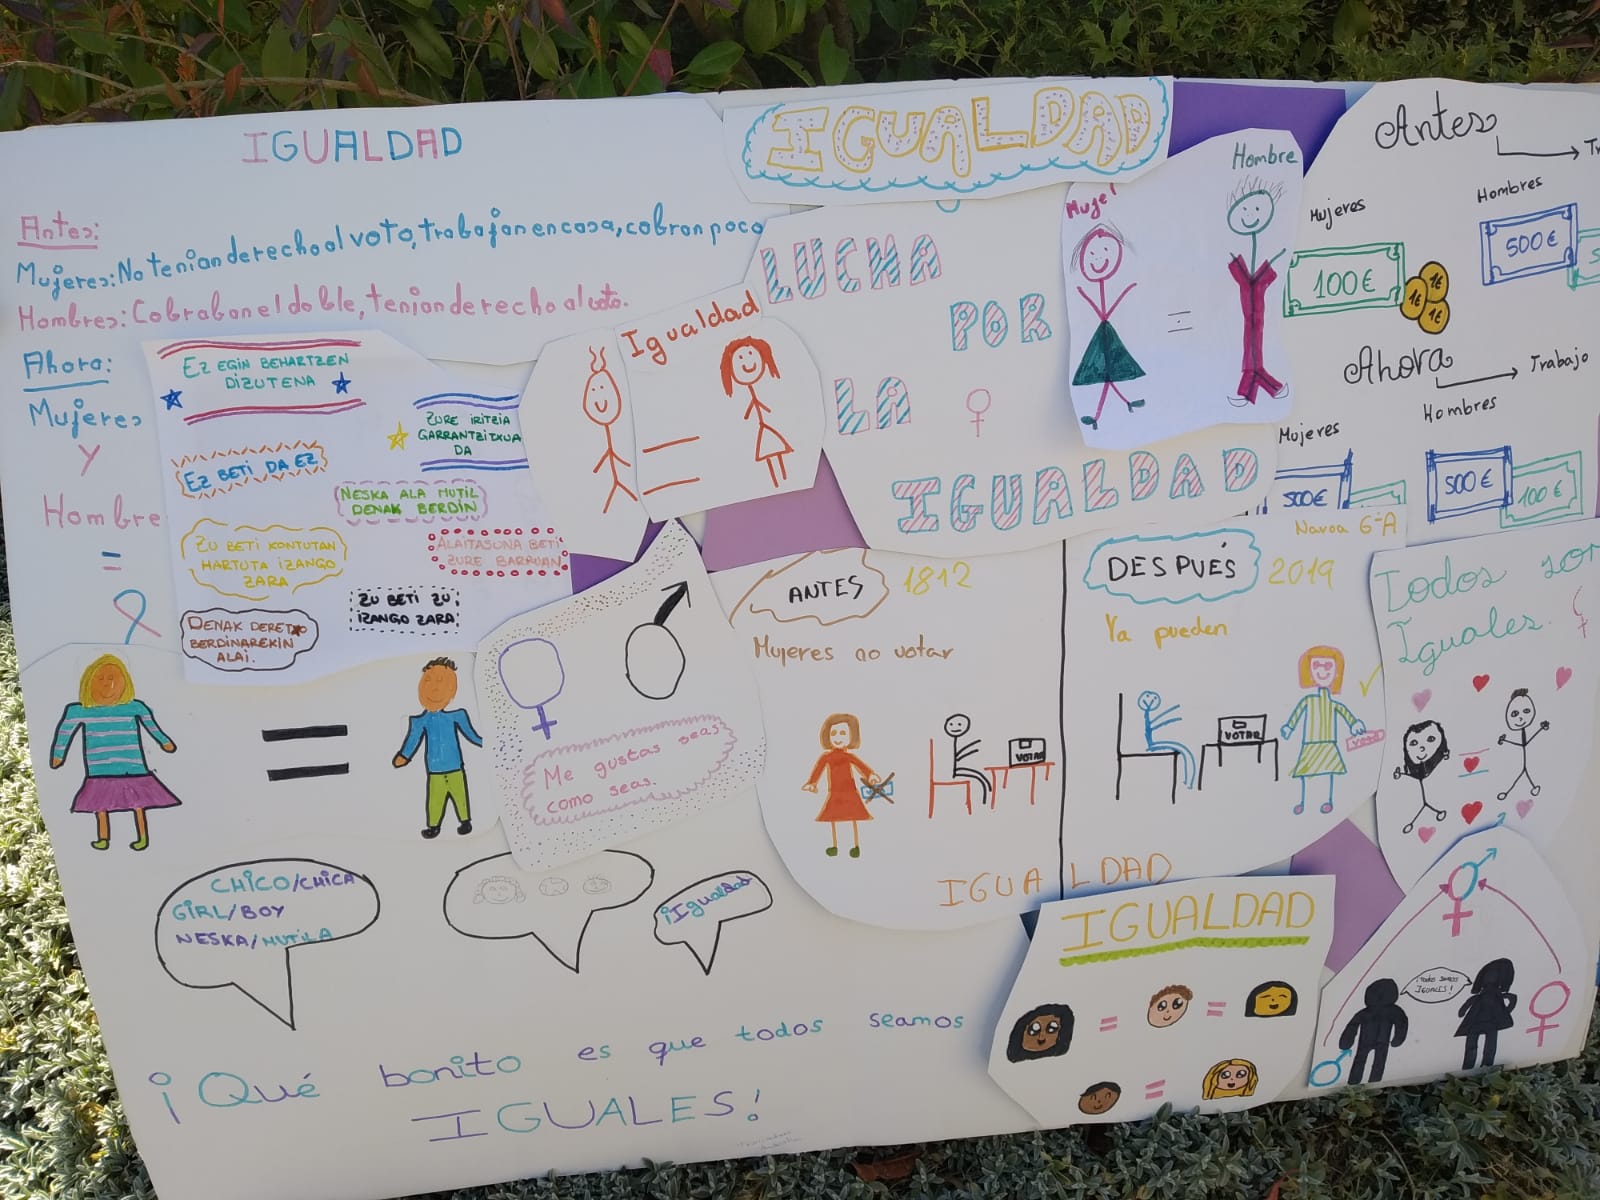 IGUALDAD
Antes:
Mujeres: No tenian derecho al voto, trabajan en casa, cobran poco
Hombres: Cobraban el doble, tenian derecho al voto.
Ahora:
Mujeres
Y
Hombre
=
EZ EGIN BEHARTZEN
DIZUTENA
ZURE IRITZIA
GARRANTZITXUA
DA
EZ BETI DA EZ
NESKA ALA MUTIL
DENAK BERDIN
ZU BETI KONTUTAN
HARTUTA IZANGO
ZARA
ALAITASUNA BETI
ZURE BARRUAN
ZU BETI ZU
IZANGO ZARA
DENAK
BERDINAREKIN
ALAI.
Igualdad
=
IGUALDAD
LUCHA
POR
LA
IGUALDAD
Mujer
Hombre
=
Antes
Mujeres
Hombres
100€
1€
1€
1€
500€
Ahora
Trabajo
Mujeres
Hombres
500€
500€
100€
=
Me gustas seas
como seas.
ANTES 1812
Mujeres no votar
VOTAR
Naroa 6ºA
DESPUÉS 2019
Ya pueden
VOTAR
IGUALDAD
Todos son
Iguales.
=
CHICO/CHICA
GIRL/BOY
NESKA/MUTILA
¡Igualdad
¡Qué bonito es que todos seamos
IGUALES!
IGUALDAD
= =
=
¡TODOS SOMOS
IGUALES!